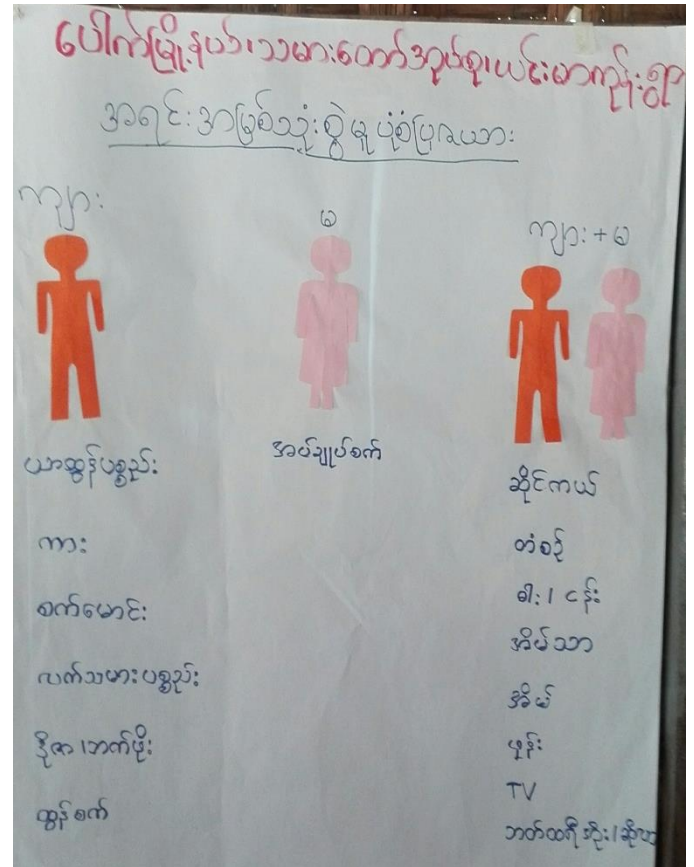 ပေါက်မြို့နယ်၊သမားတော်အုပ်စု၊ယင်းမာကုန်းရွာ
အရင်းအမြစ်သုံးစွဲမှုပုံစံပြဇယား
ကျား
ယာထွန်ပစ္စည်း
ကား
စက်မောင်း
လက်သမားပစ္စည်း
ဒိုဇာ၊ဘက်ဖိုး
ထွန်စက်
မ
အပ်ချုပ်စက်
ကျား+မ
ဆိုင်ကယ်
တံစဉ်
ဓါး၊
အိမ်သာ
အိမ်
ဖုန်း
TV
ဘတ်ထရီအိုး၊ဆိုလာ